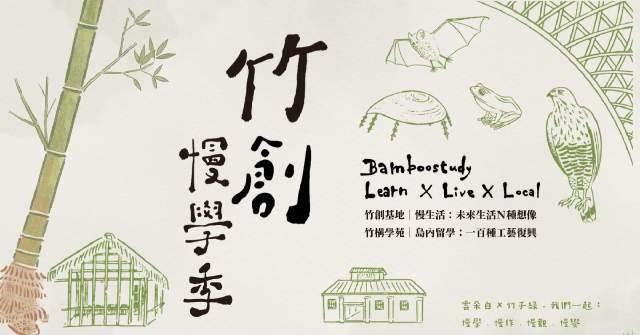 竹創
慢學季
Bamboostudy
Learn X Live X Local
竹創基地｜慢生活：未來生活N種想像
竹構學苑｜島內留學：一百種工藝復興
雲朵白 X 竹子綠，我們一起：